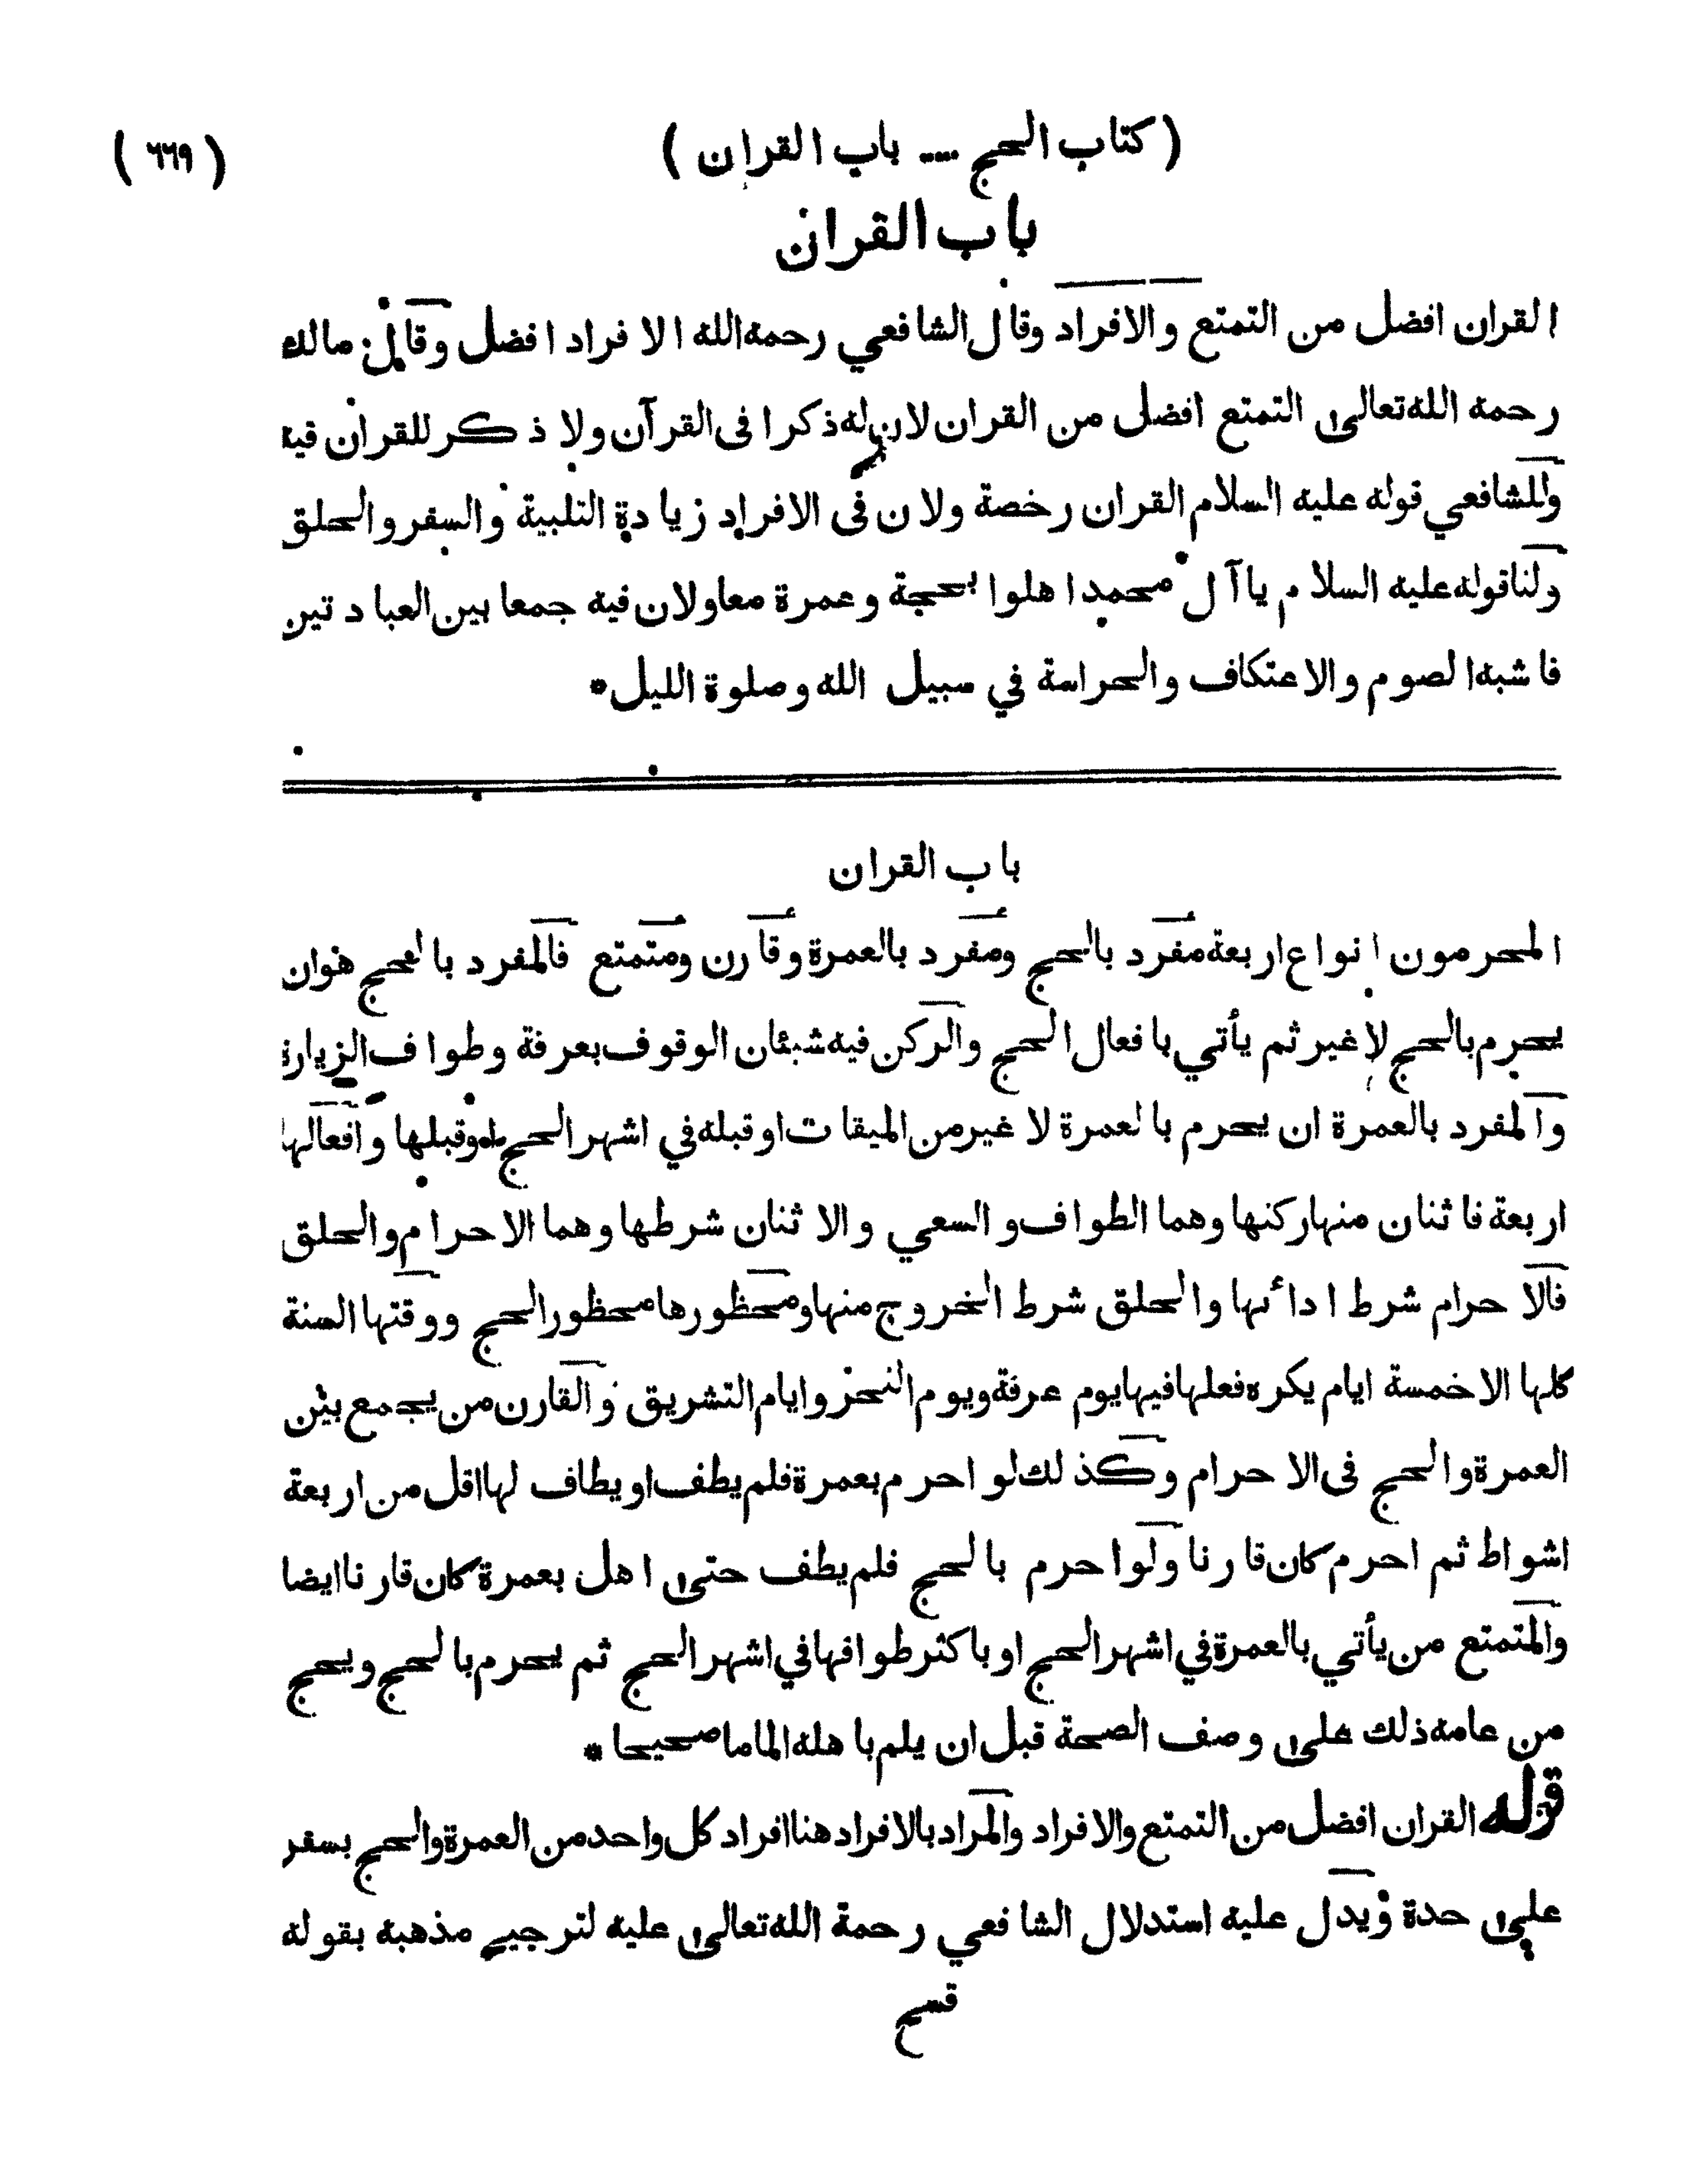 ( كتاب الحج ..... باب القران )
( ٦٦٩ )
باب القران
القران افضل من التمتع والافراد وقال الشافعي رحمه الله الافراد افضل وقال مالك
رحمه الله تعالى التمتع افضل من القران لان له ذكرا فى القرآن ولا ذكر للقران فيه
وللشافعي قوله عليه السلام القران رخصة ولان فى الافراد زيادة التلبية والسفر والحلق
ولنا قوله عليه السلام يا آل محمد اهلوا بحجة وعمرة معا ولان فيه جمعا بين العبادتين
فاشبه الصوم والاعتكاف والحراسة في سبيل الله وصلوة الليل *
باب القران
المحرمون انواع اربعة مفرد بالحج ومفرد بالعمرة وقارن ومتمتع فالمفرد بالحج هو ان
يحرم بالحج لا غير ثم يأتي بافعال الحج والركن فيه شيئان الوقوف بعرفة وطواف الزيارة
والمفرد بالعمرة ان يحرم بالعمرة لا غير من الميقات او قبله في اشهر الحج او قبلها وافعالها
اربعة فاثنان منها ركنها وهما الطواف والسعي والاثنان شرطها وهما الاحرام والحلق
فالاحرام شرط ادائها والحلق شرط الخروج منها ومحظورها محظور الحج ووقتها السنة
كلها الا خمسة ايام يكره فعلها فيها يوم عرفة ويوم النحر وايام التشريق والقارن من يجمع بين
العمرة والحج فى الاحرام وكذلك لو احرم بعمرة فلم يطف او يطاف لها اقل من اربعة
اشواط ثم احرم كان قارنا ولو احرم بالحج فلم يطف حتى اهل بعمرة كان قارنا ايضا
والمتمتع من يأتي بالعمرة في اشهر الحج او باكثر طوافها في اشهر الحج ثم يحرم بالحج ويحج
من عامه ذلك على وصف الصحة قبل ان يلم باهله الماما صحيحا *
قوله القران افضل من التمتع والافراد والمراد بالافراد هنا افراد كل واحد من العمرة والحج بسفر
على حدة ويدل عليه استدلال الشافعي رحمة الله تعالى عليه لترجيح مذهبه بقوله